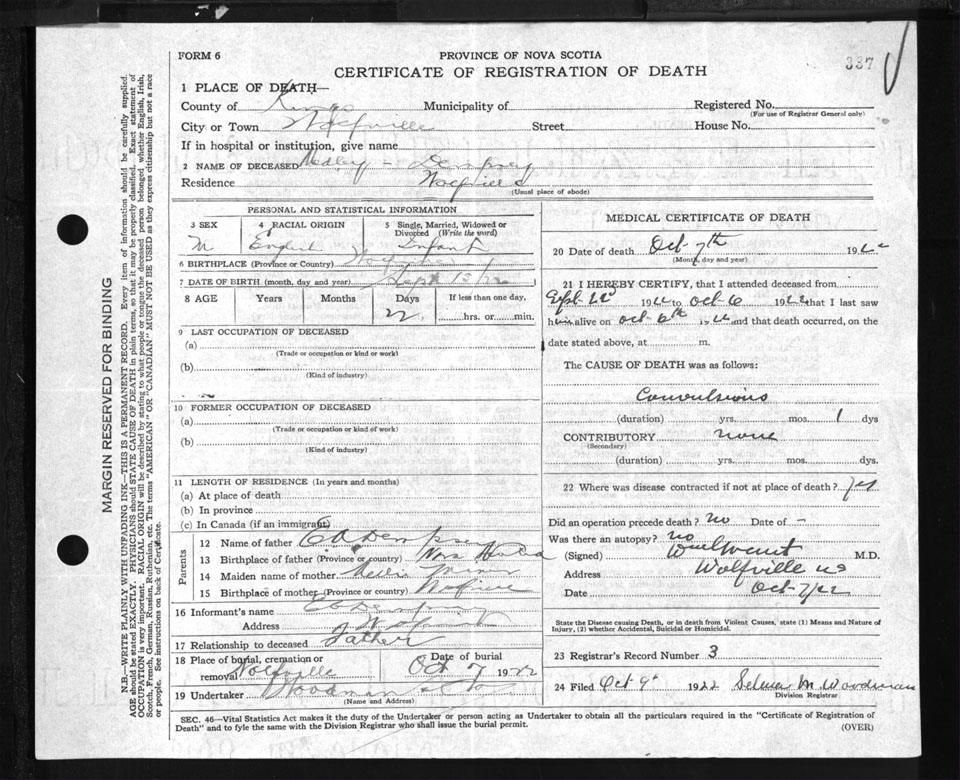 FORM 6
PROVINCE OF NOVA SCOTIA
337
CERTIFICATE OF REGISTRATION OF DEATH
1 PLACE OF DEATH—
County of Kings Municipality of Registered No.
(For use of Registrar General only)
City or Town Wolfville Street House No.
If in hospital or institution, give name
2 NAME OF DECEASED Medley - Dempsey
Residence Wolfville
(Usual place of abode)
PERSONAL AND STATISTICAL INFORMATION
3 SEX 4 RACIAL ORIGIN 5 Single, Married, Widowed or
Divorced (Write the word)
M English Infant
6 BIRTHPLACE (Province or Country) Wolfville
7 DATE OF BIRTH (month, day and year) Sept 15/22
8 AGE Years Months Days If less than one day,
22 hrs. or min.
9 LAST OCCUPATION OF DECEASED
(a)
(Trade or occupation or kind or work)
(b)
(Kind of industry)
10 FORMER OCCUPATION OF DECEASED
(a)
(Trade or occupation or kind of work)
(b)
(Kind of industry)
11 LENGTH OF RESIDENCE (In years and months)
(a) At place of death
(b) In province
(c) In Canada (if an immigrant)
Parents
12 Name of father Ed Dempsey
13 Birthplace of father (Province or country) Nova Scotia
14 Maiden name of mother Nellie Miner
15 Birthplace of mother (Province or country) Wolfville
16 Informant's name Ed Dempsey
Address Wolfville
17 Relationship to deceased Father
18 Place of burial, cremation or Date of burial
removal Wolfville Oct 7 1922
19 Undertaker Woodman & Co
(Name and Address)
MEDICAL CERTIFICATE OF DEATH
20 Date of death Oct 7th 1922
(Month, day and year)
21 I HEREBY CERTIFY, that I attended deceased from
Sept 22d 1922 to Oct 6 1922 that I last saw
him alive on Oct 6th 1922 and that death occurred, on the
date stated above, at m.
The CAUSE OF DEATH was as follows:
Convulsions
(duration) yrs. mos. 1 dys
CONTRIBUTORY none
(Secondary)
(duration) yrs. mos. dys.
22 Where was disease contracted if not at place of death? yes
Did an operation precede death? no Date of -
Was there an autopsy? no
(Signed) M.D.
Address Wolfville NS
Date Oct 7/22
State the Disease causing Death, or in death from Violent Causes, state (1) Means and Nature of
Injury, (2) whether Accidental, Suicidal or Homicidal.
23 Registrar's Record Number 3
24 Filed Oct 9 1922 Selena M. Woodman
Division Registrar
SEC. 46—Vital Statistics Act makes it the duty of the Undertaker or person acting as Undertaker to obtain all the particulars required in the "Certificate of Registration of
Death" and to fyle the same with the Division Registrar who shall issue the burial permit.
(OVER)
MARGIN RESERVED FOR BINDING
N.B.—WRITE PLAINLY WITH UNFADING INK—THIS IS A PERMANENT RECORD. Every item of information should be carefully supplied.
AGE should be stated EXACTLY. PHYSICIANS should STATE CAUSE OF DEATH in plain terms, so that it may be properly classified. Exact statement of
OCCUPATION is very important. RACIAL ORIGIN will be described by stating to what people or tongue the deceased person belonged whether English, Irish,
Scotch, French, German, Russian, Ruthenian, etc. The terms "AMERICAN" OR "CANADIAN" MUST NOT BE USED as they express citizenship but not a race
or people. See instructions on back of Certificate.